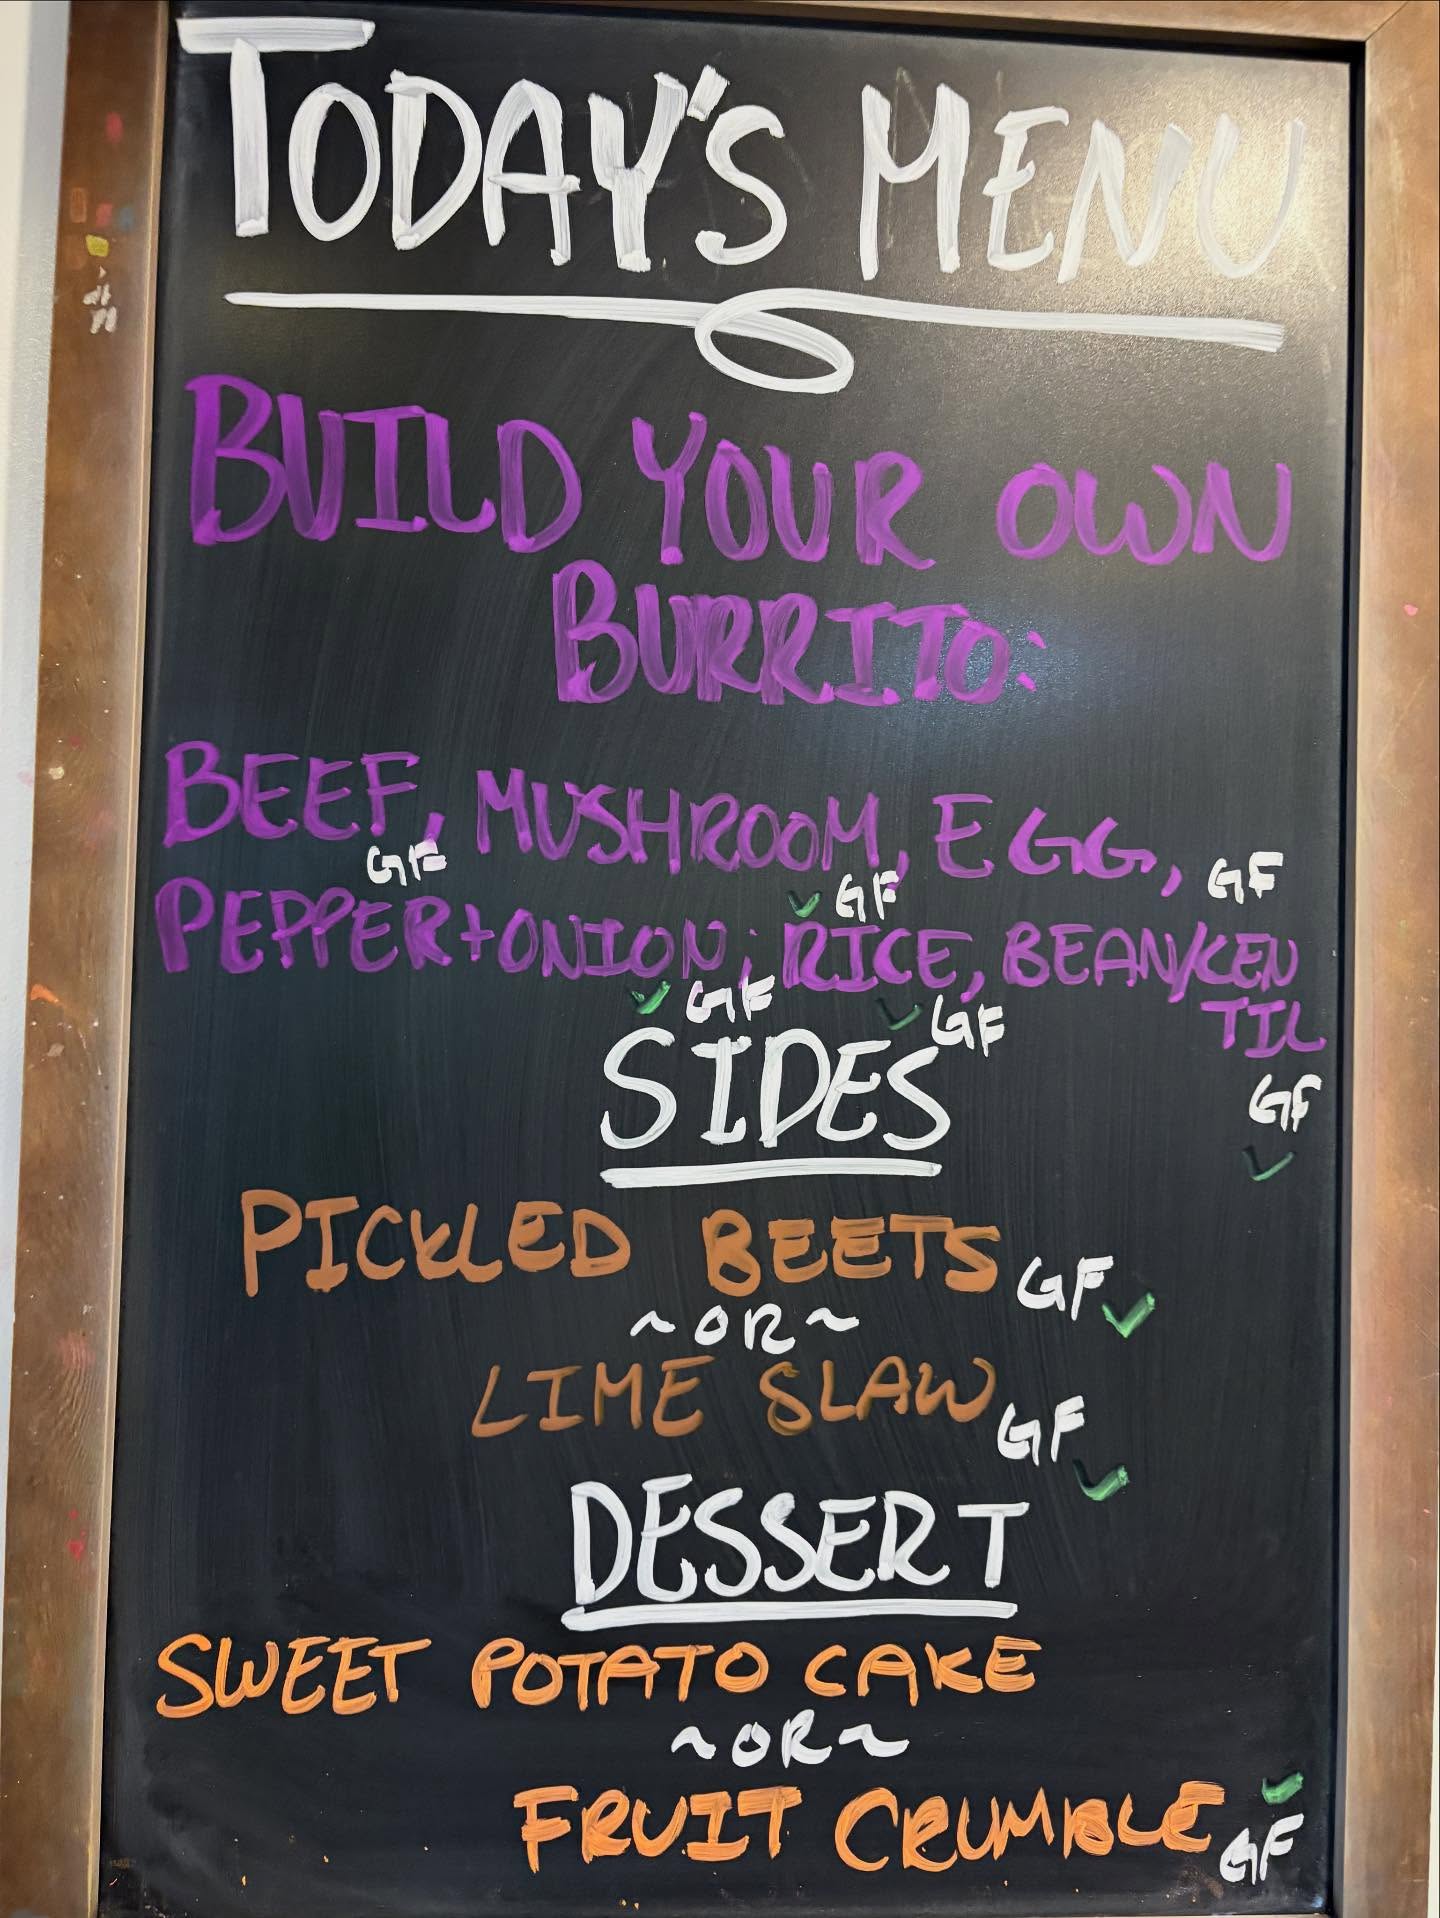 TODAY'S MENU
BUILD YOUR OWN
BURRITO:
BEEF, MUSHROOM, EGG,
GF ✓ GF GF
PEPPER+ONION, RICE, BEAN/KEN
TIL
✓ GF ✓ GF
GF
✓
SIDES
PICKLED BEETS GF ✓
~OR~
LIME SLAW GF ✓
DESSERT
SWEET POTATO CAKE
~OR~
FRUIT CRUMBLE ✓
GF